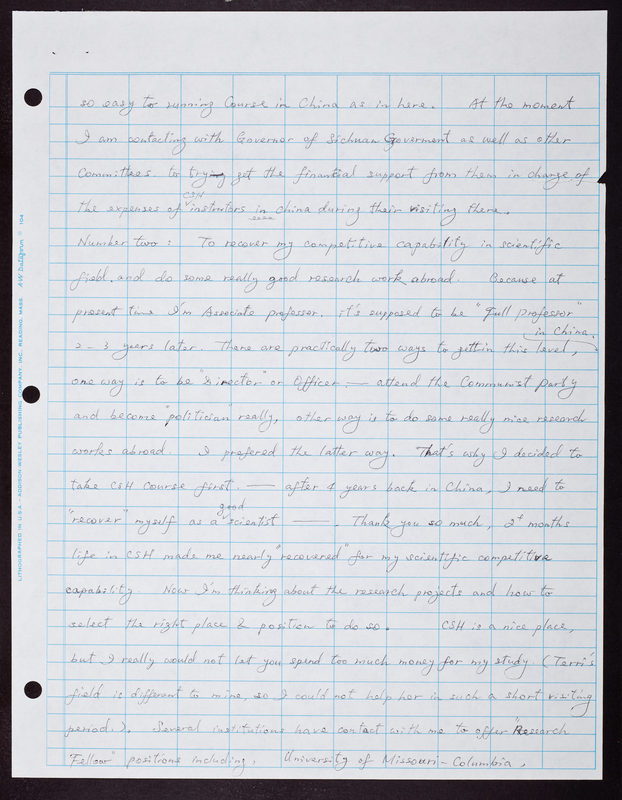 so easy to running Course in China as in here. At the moment
I am contacting with Governor of Sichuan Goverment as well as other
Committees. to trying get the financial support from them in charge of
the expenses of CSH instrutors in China during their visiting there.
Number two: To recover my competitive capability in scientific
field. and do some really good research work abroad. Because at
present time I'm Associate professor. it's supposed to be "Full professor"
in China.
2-3 years later. There are practically two ways to gettin this level,
one way is to be "director" or Officer — attend the Communist party
and become "politician" really, other way is to do some really nice research
works abroad. I prefered the latter way. That's why I decided to
take CSH course first. — after 4 years back in China, I need to
"recover" myself as a good scientist —. Thank you so much, 2+ months
life in CSH made me nearly "recovered" for my scientific competitive
capability. Now I'm thinking about the research projects and how to
select the right place & position to do so. CSH is a nice place,
but I really would not let you spend too much money for my study (Terri's
field is different to mine, so I could not help her in such a short visiting
period.). Several institutions have contact with me to offer "Research
Fellow" positions including, University of Missouri-Columbia,
LITHOGRAPHED IN U.S.A. - ADDISON-WESLEY PUBLISHING COMPANY, INC. READING, MASS. 104